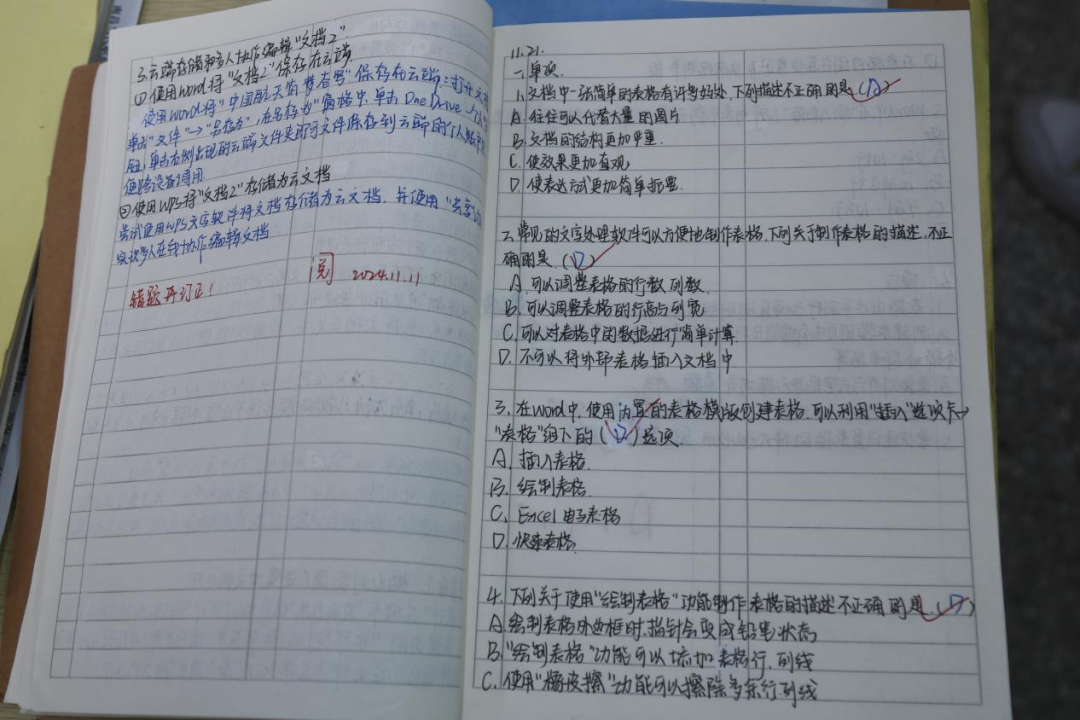 3.云端存储和多人协作编辑“文档2”.
(1)使用Word将“文档2”保存在云端
使用Word将“中国航天筑梦苍穹”保存在云端:打开文档
单击“文件”→“另存为”,在另存为”窗格中,单击OneDrive
钮,单击右侧出现的云端文件夹即可文件保存到云端的个人账
便跨设备调用
(2)使用WPS将“文档2”存储为云文档
尝试使用WPS文字软件将文档存储为云文档.并使用“共享
实现多人在线协作编辑文档
阅 2024.11.11
错题再订正!
11.21.
一、单项.
1.文档中一张简单的表格有许多好处,下列描述不正确的是(A)
A.往往可以代替大量的图片
B.文档的结构更加严重.
C.使效果更加直观
D.使表达方式更加简单扼要.
2.常见的文字处理软件可以方便地制作表格,下列关于制作表格的描述,不正
确的是.(D)
A.可以调整表格的行数列数.
B.可以调整表格的行高与列宽
C.可以对表格中的数据进行简单计算
D.不可以将外部表格插入文档中
3.在Word中,使用内置的表格模版创建表格,可以利用“插入”选项卡→
“表格”组下的(D)选项.
A.插入表格.
B.绘制表格.
C.Excel电子表格
D.快速表格.
4.下列关于使用“绘制表格”功能制作表格的描述不正确的是.(D)
A.绘制表格外边框时,指针会变成铅笔状态
B.“绘制表格”功能可以添加表格行.列线
C.使用“橡皮擦”功能可以擦除多余行列线